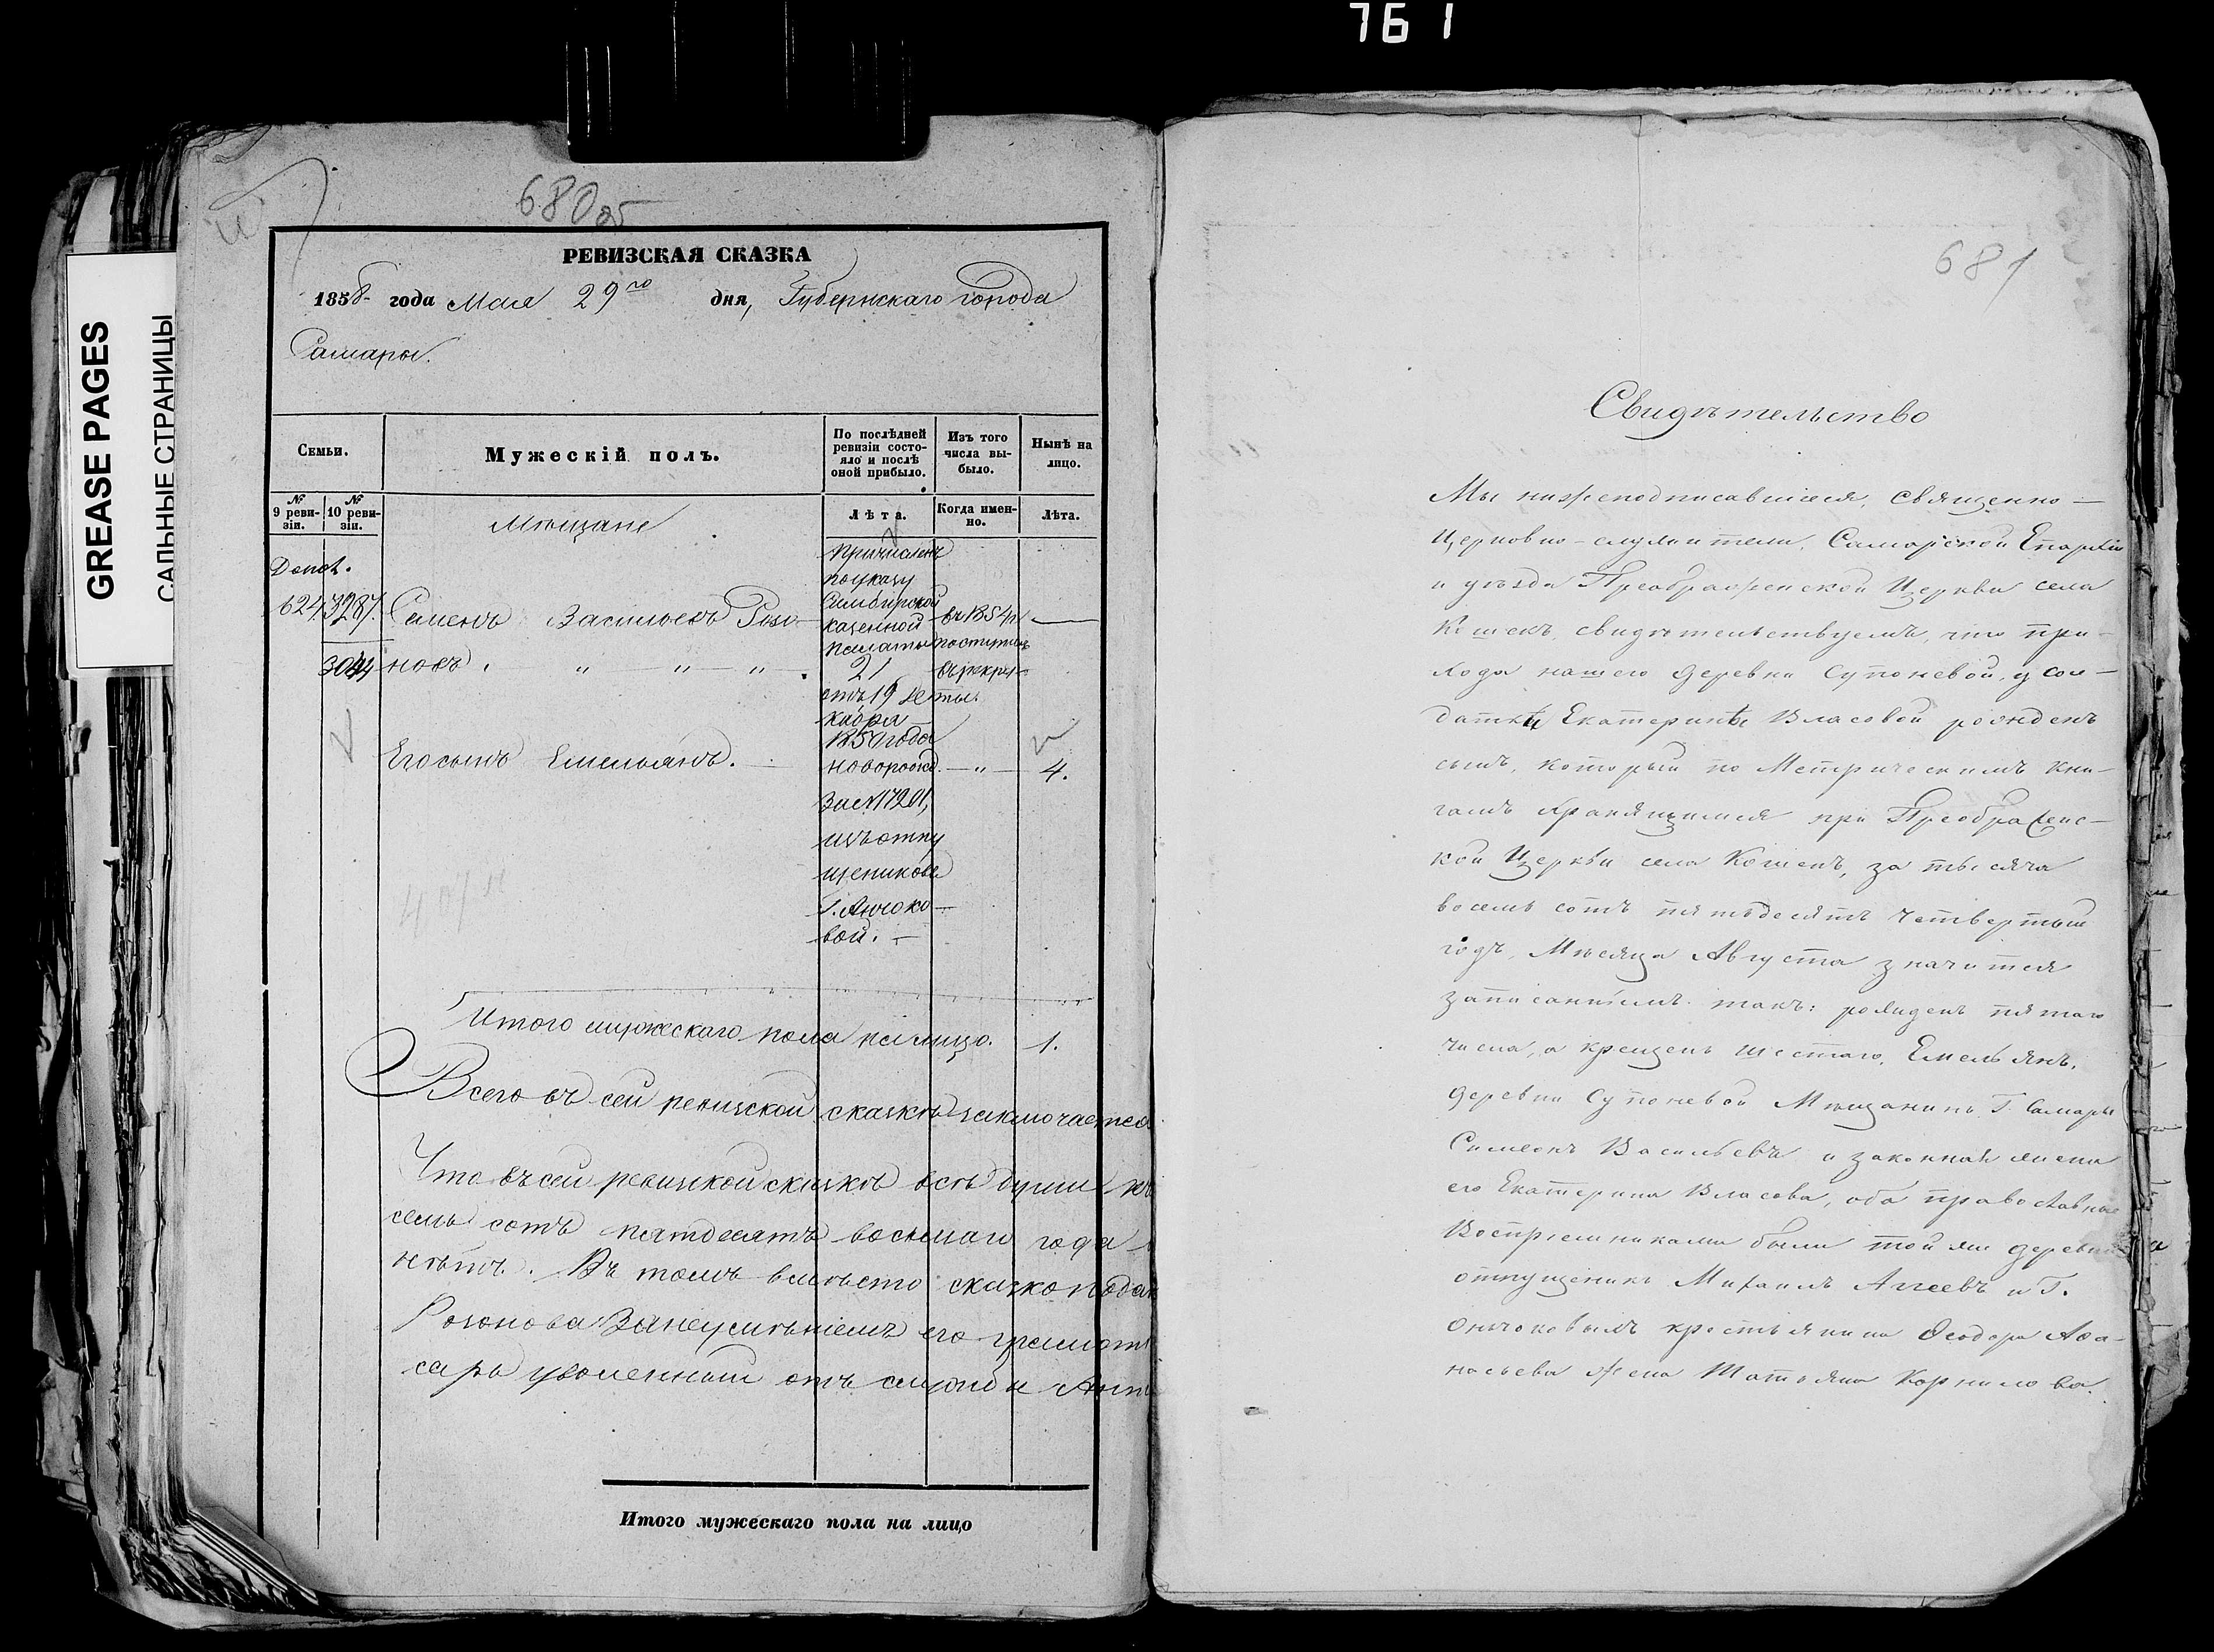 761
GREASE PAGES
САЛЬНЫЕ СТРАНИЦЫ
680 об
РЕВИЗСКАЯ СКАЗКА
1858 года Мая 29го дня, Губернскаго города
Самары.
Семьи.
Мужескій полъ.
По послѣдней ревизіи состояло и послѣ оной прибыло.
Изъ того числа выбыло.
Нынѣ на лицо.
№ 9 ревизіи.
№ 10 ревизіи.
Мѣщане
Лѣта.
Когда именно.
Лѣта.
Допол.
624 3287. Семенъ Васильевъ Розо
новъ. " " "
Причисленъ
по указу
Симбирской
казенной
палаты
21
отъ 19 де
кабря
1850 года
въ 1854 г.
поступилъ
въ рекру
ты.
Его сынъ Емельянъ.
новорожд. " 4.
За № 17201,
изъ отпу
щениковъ
Г.
вой.
Итого мужескаго пола на лицо. 1.
Всего въ сей ревизской сказкѣ заключается
Что въ сей ревизской сказкѣ всѣ души къ
семь сотъ пятдесятъ восьмаго года
нѣтъ. Въ томъ вмѣсто сказкопода
Розонова За неумѣніемъ его грамотѣ
сарь уволенный отъ службы
Итого мужескаго пола на лицо
681
Свидѣтельство
Мы нижеподписавшіеся, священно—
Церковно-служители, Самарской Епархіи
и уѣзда Преображенской Церкви села
Кошекъ, свидѣтельствуемъ, что при-
хода нашего деревни Супоневой, у сол—
датки Екатерины Власовой рожденъ
сынъ, который по Метрическимъ кни—
гамъ хранящимся при Преображенс—
кой Церкви села Кошекъ, за тысяча
восемь сотъ пятьдесятъ четвертый
годъ, Мѣсяца Августа значится
записаннымъ такъ: рожденъ пятаго
числа, а крещенъ шестаго, Емельянъ.
деревни Супоневой Мѣщанинъ Г. Самары
Симеонъ Васильевъ и законная жена
его Екатерина Власова, оба православные
Воспріемниками были той же деревни
отпущеникъ Михаилъ Агеевъ и Г.
крестьянина Ѳеодора Аѳа-
насьева жена Татьяна Корнилова.